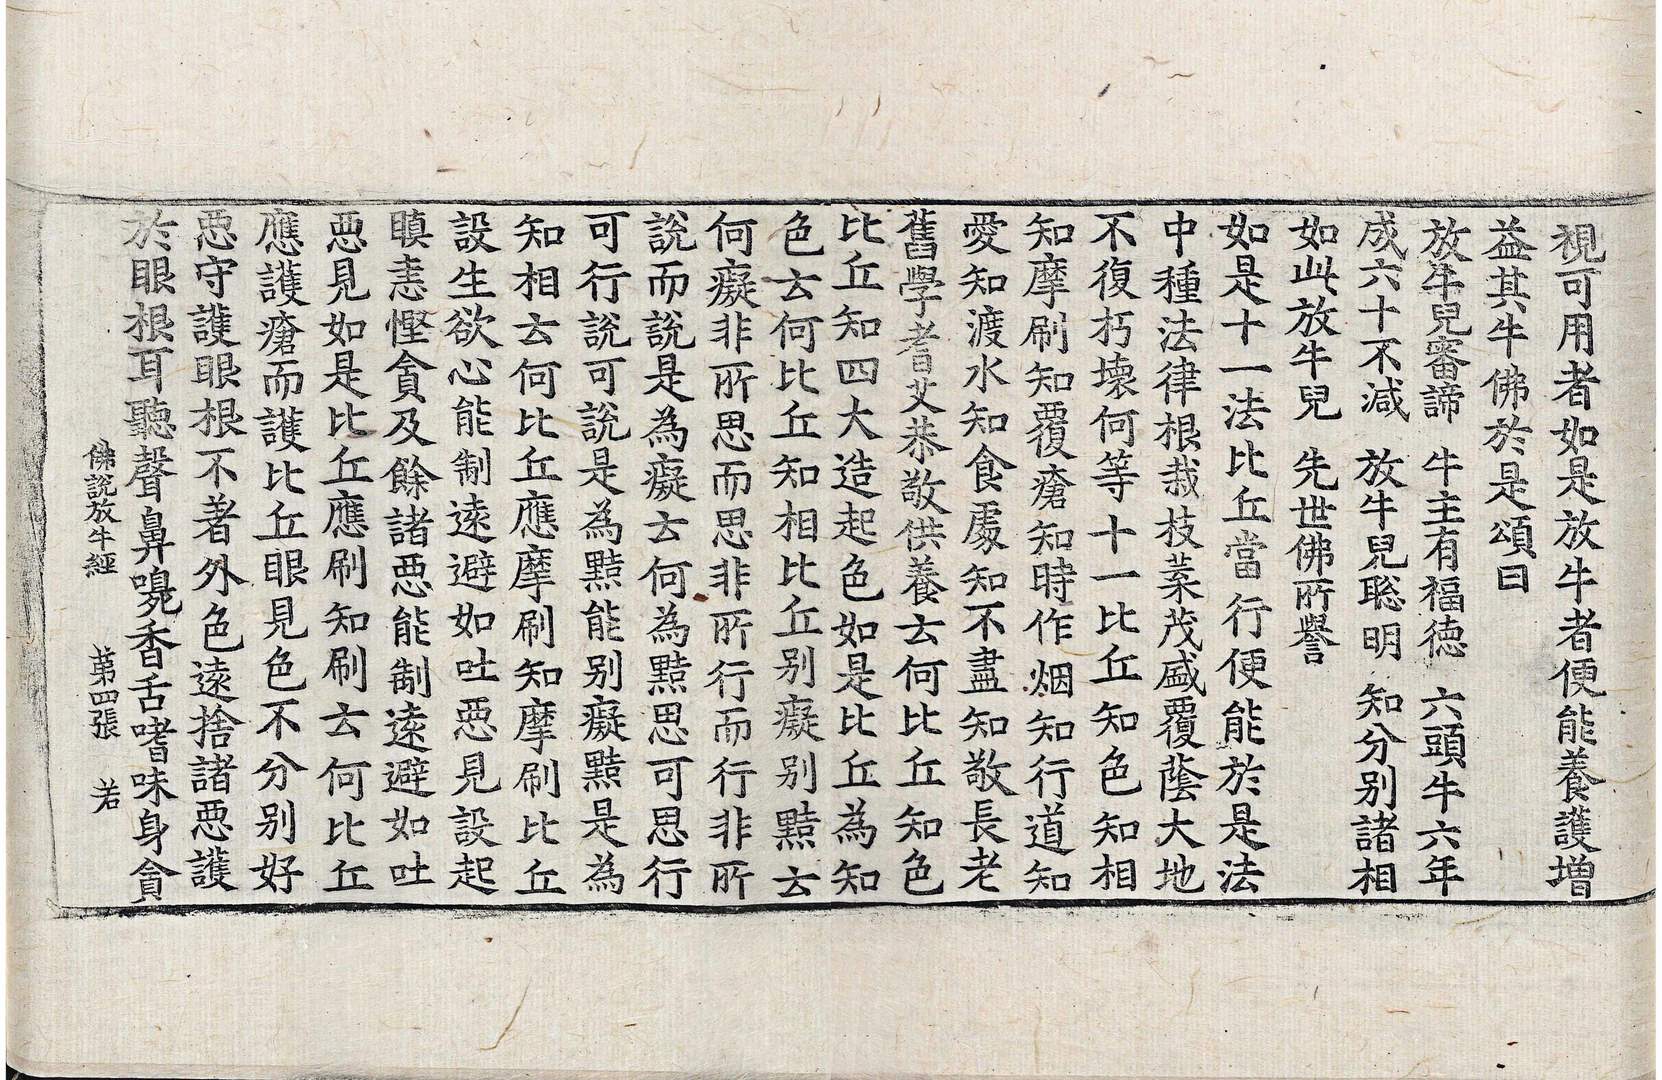 視可用者如是放牛者便能養護增
益其牛佛於是頌曰
放牛兒審諦 牛主有福德 六頭牛六年
成六十不減 放牛兒聡明 知分別諸相
如此放牛兒 先世佛所譽
如是十一法比丘當行便能於是法
中種法律根栽枝葉茂盛覆蔭大地
不復朽壞何等十一比丘知色知相
知摩刷知覆瘡知時作烟知行道知
愛知渡水知食處知不盡知敬長老
舊學耆艾恭敬供養云何比丘知色
比丘知四大造起色如是比丘為知
色云何比丘知相比丘別癡別黠云
何癡非所思而思非所行而行非所
說而說是為癡云何為黠思可思行
可行說可說是為黠能別癡黠是為
知相云何比丘應摩刷知摩刷比丘
設生欲心能制遠避如吐惡見設起
瞋恚慳貪及餘諸惡能制遠避如吐
惡見如是比丘應刷知刷云何比丘
應護瘡而護比丘眼見色不分別好
惡守護眼根不著外色遠捨諸惡護
於眼根耳聽聲鼻嗅香舌嗜味身貪
佛說放牛經 第四張 若